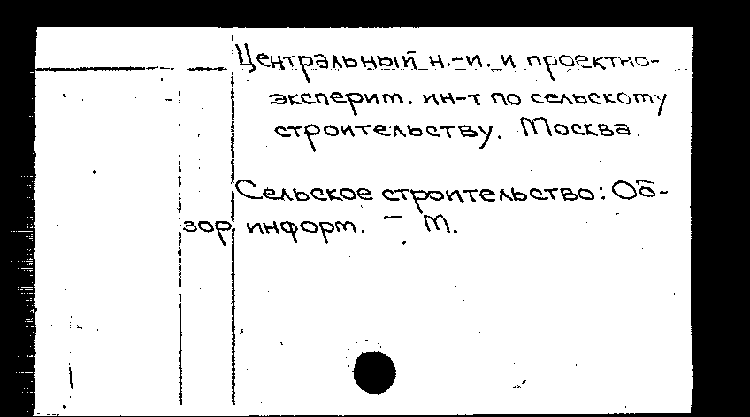 Центральный н.-и. и проектно-
эксперим. ин-т по сельскому
строительству. Москва.
Сельское строительство: Об-
зор. информ. — М.